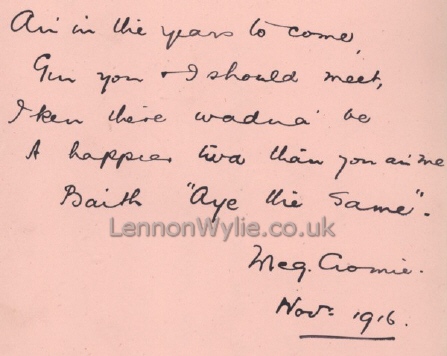 An in the years to come,
Gin you & I should meet,
I ken there wadna' be
A happier twa than you an me
Baith "Aye the Same".
LennonWylie.co.uk
Meg. Cromie.
Novr. 1916.